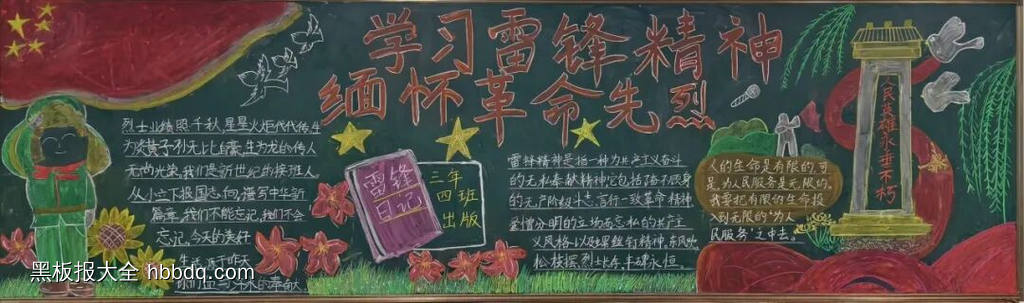 学习雷锋精神
缅怀革命先烈
烈士业绩照千秋,星星火炬代代传
为炎黄子孙无比自豪,生为龙的传人
无尚光荣,我们是新世纪的接班人,
从小立下报国志向,谱写中华新
篇章,我们不能忘记,我们不会
忘记,今天的美好
生活,源于昨天
雷锋
日记
三年
四班
出版
雷锋精神是指一种为共产主义奋斗
的无私奉献精神,它包括奋不顾身
的无产阶级斗志,言行一致革命精神
爱憎分明的立场而忘私的共产主
义风格以及艰苦奋斗精神,东风吹
松枝摆,烈士长存,丰碑永恒。
人的生命是有限的,可
是,为人民服务是无限的。
我要把有限的生命投
入到无限的“为人
民服务”之中去。
人民英雄永垂不朽
黑板报大全 hbbdq.com